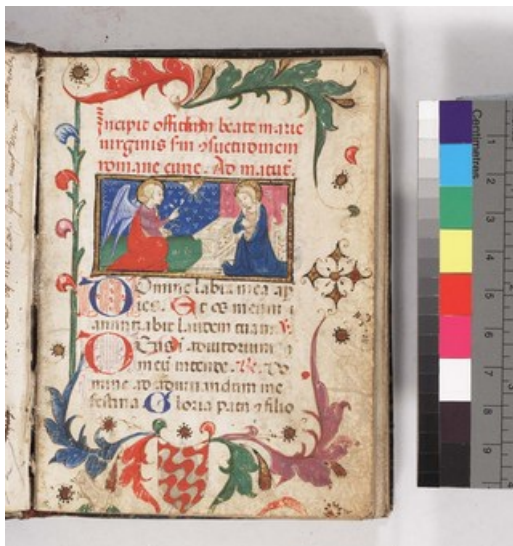 Incipit officium beate marie
virginis s'm osuetudinem
romane curie. Ad matut'.
Domine labia mea ap
ies. Et os meum
anuntiabit laudem tuam. V.
Deus i adiutorium
meu intende. R. Do
mine ad adiuuandum me
festina Gloria patri & filio
Centimetres
1
2
3
4
5
6
7
8
9